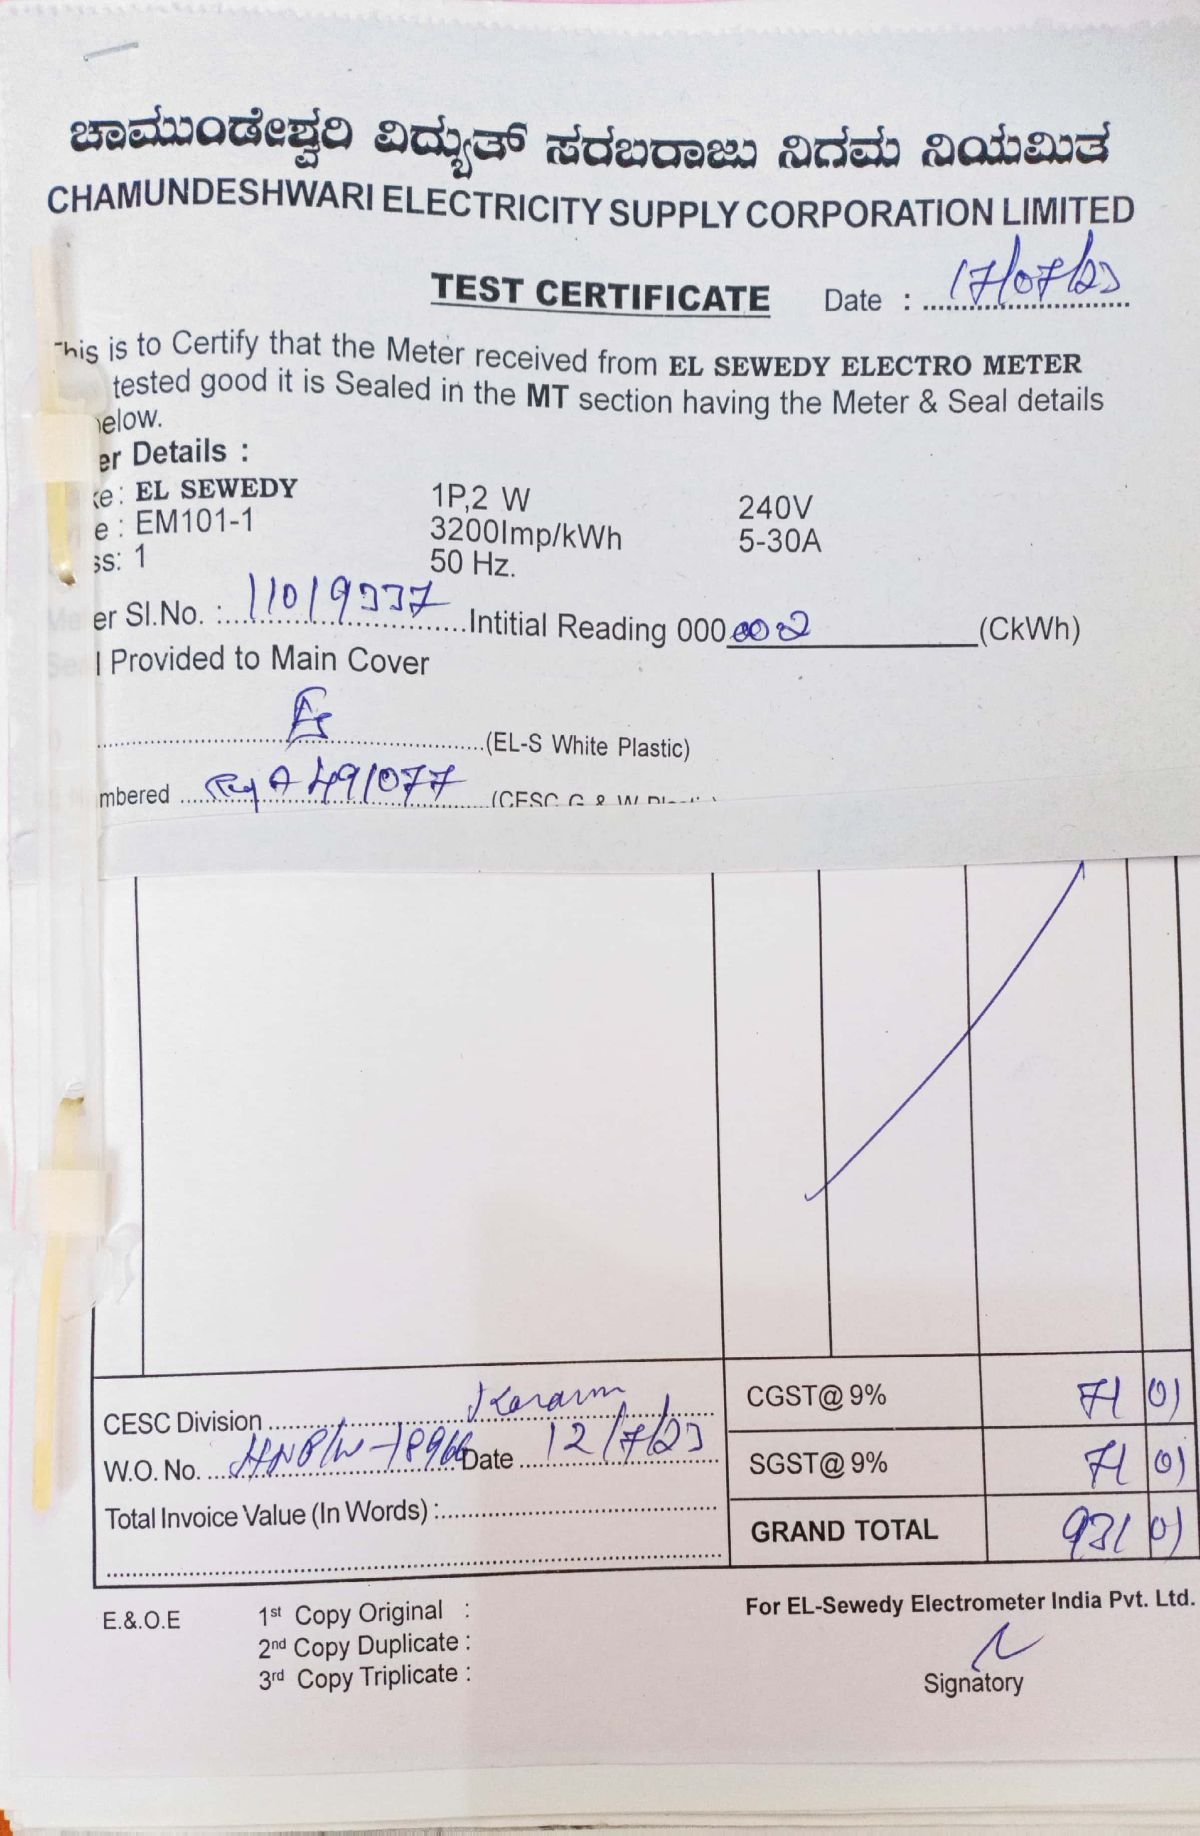 ಚಾಮುಂಡೇಶ್ವರಿ ವಿದ್ಯುತ್ ಸರಬರಾಜು ನಿಗಮ ನಿಯಮಿತ
CHAMUNDESHWARI ELECTRICITY SUPPLY CORPORATION LIMITED
TEST CERTIFICATE Date : 17/07/23
This is to Certify that the Meter received from EL SEWEDY ELECTRO METER
tested good it is Sealed in the MT section having the Meter & Seal details
elow.
er Details :
ke: EL SEWEDY 1P,2 W 240V
e : EM101-1 3200Imp/kWh 5-30A
ss: 1 50 Hz.
er Sl.No. : 11019337 Intitial Reading 000 002 (CkWh)
l Provided to Main Cover
(EL-S White Plastic)
mbered A 491077 (CESC G & W
CESC Division
W.O. No. Date 12/7/23
Total Invoice Value (In Words) :
CGST@ 9% 71 01
SGST@ 9% 71 01
GRAND TOTAL 931 01
E.&.O.E
1st Copy Original :
2nd Copy Duplicate :
3rd Copy Triplicate :
For EL-Sewedy Electrometer India Pvt. Ltd.
Signatory